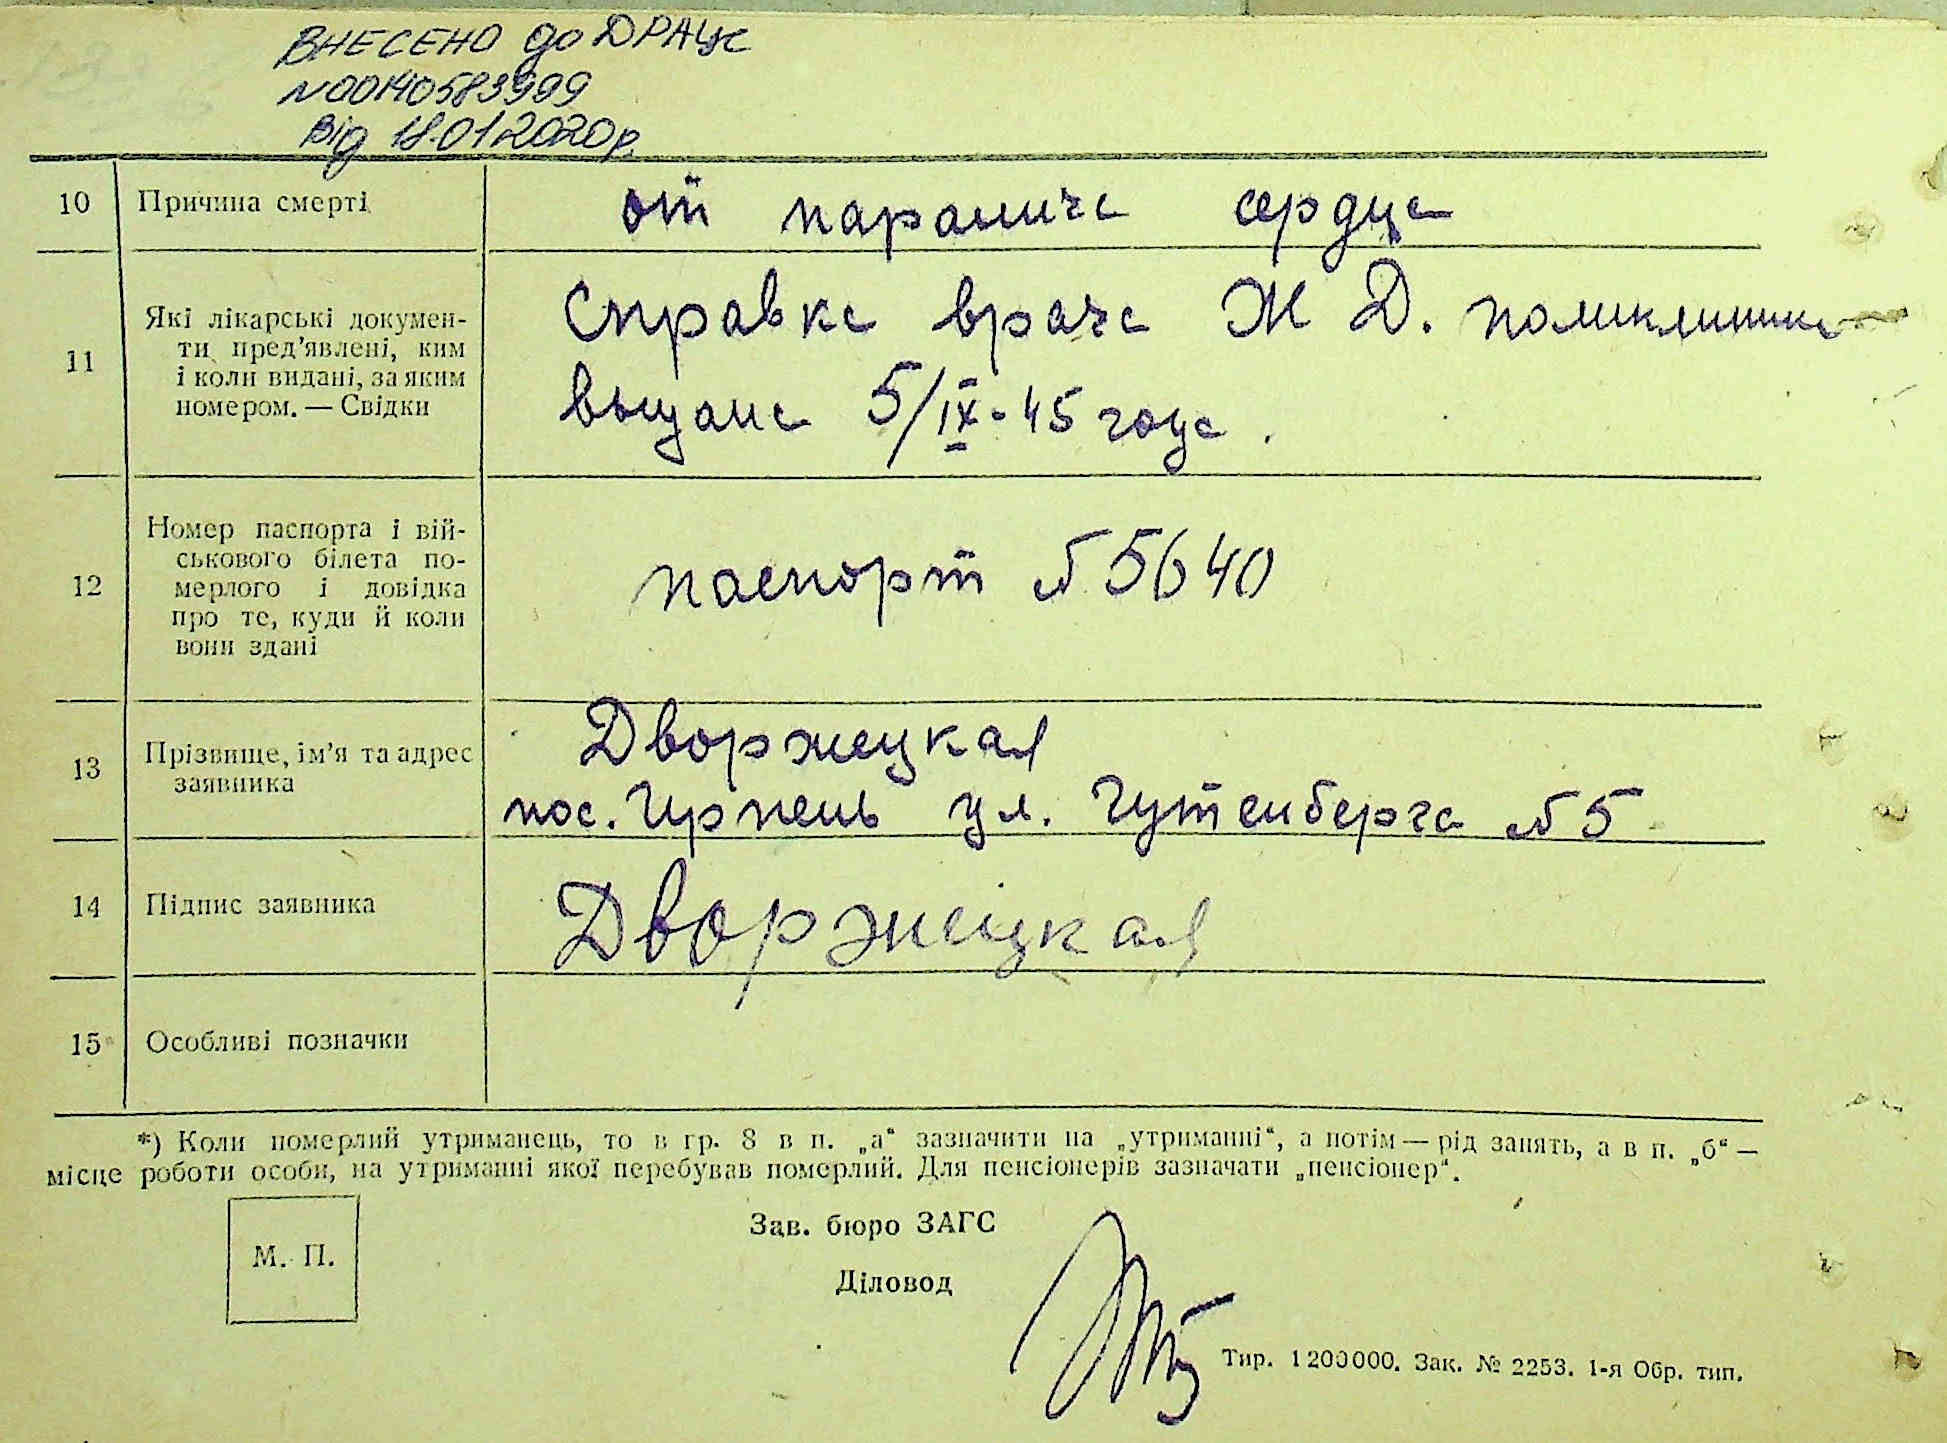 ВНЕСЕНО до ДРАЦС
N00140583999
від 18.01.2020р.
10 Причина смерті от паралича сердца
11 Які лікарські докумен-
ти пред’явлені, ким
і коли видані, за яким
номером. — Свідки
Справка врача Ж Д. поликлиники
выдана 5/IX-45 года.
12 Номер паспорта і вій-
ськового білета по-
мерлого і довідка
про те, куди й коли
вони здані
паспорт № 5640
13 Прізвище, ім’я та адрес
заявника
Дворжецкая
пос. Ирпень ул. Гутенберга № 5
14 Підпис заявника Дворжецкая
15 Особливі позначки
*) Коли померлий утриманець, то в гр. 8 в п. „а“ зазначити на „утриманні“, а потім — рід занять, а в п. „б“ —
місце роботи особи, на утриманні якої перебував померлий. Для пенсіонерів зазначати „пенсіонер“.
М. П.
Зав. бюро ЗАГС
Діловод
Тир. 1200000. Зак. № 2253. 1-я Обр. тип.